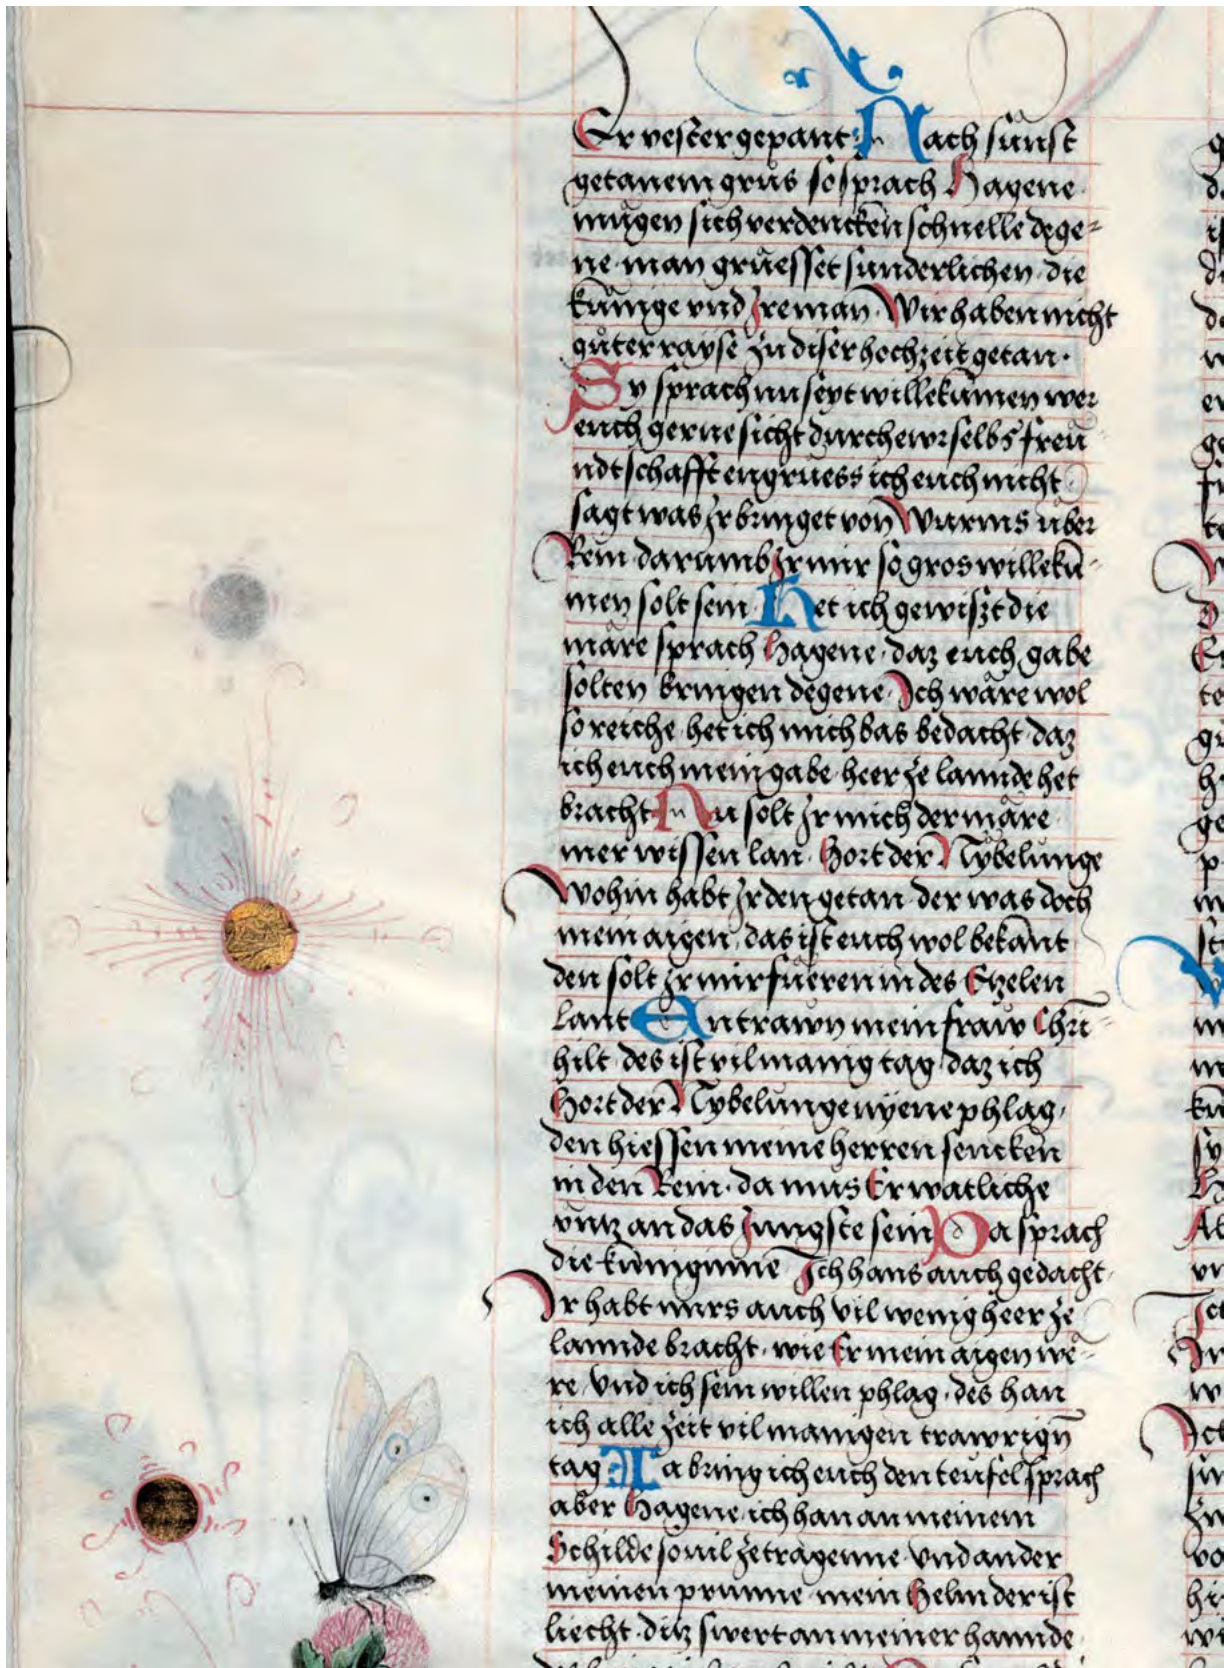 Er vester gepant. Nach sünst
getanem grůs so sprach Hagene.
mügen sich verdencken schnelle dege-
ne. man grüesset sunderlichen. die
künige vnd Ire man. Wir haben nicht
gůter rayse zu diser hochzeit getan.
Sy sprach nu seyt willekumen wer
euch gerne sicht durch ewr selbs freü-
ndtschafft engruess ich euch nicht
sagt was Ir bringet von Wurms über
Rein. darumb Ir mir so gros willekū-
men solt sein. Het ich gewisst die
märe sprach Hagene. daz euch gabe
solten bringen degene. Ich wäre wol
so reiche. het ich mich bas bedacht. daz
ich euch mein gabe. heer ze lannde het
bracht. Nu solt Ir mich der märe
mer wissen lan. Hort der Nybelunge
Wohin habt Ir den getan. der was doch
mein aigen. das ist euch wol bekant
den solt Ir mir fueren in des Etzelen
lant. Entrawn mein fraw Chri-
hilt. des ist vil manig tag. daz ich
Hort der Nybelungen nyene phlag.
den hiessen meine herren sencken
in den Rein. da mus Er watliche
vntz an das Jungste sein. Da sprach
die küniginne Ich hans auch gedacht.
Ir habt mirs auch vil wenig heer ze
lannde bracht. wie Er mein aigen we-
re. Vnd ich sein willen phlag. des han
ich alle zeit vil manigen trawrign̄
tag. Ja bring ich euch den teufel sprach
aber Hagene. ich han an meinem
Schilde so vil ze tragenne. Vnd an der
meinen prunne. mein Helm der ist
liecht. ditz swert an meiner hannde.